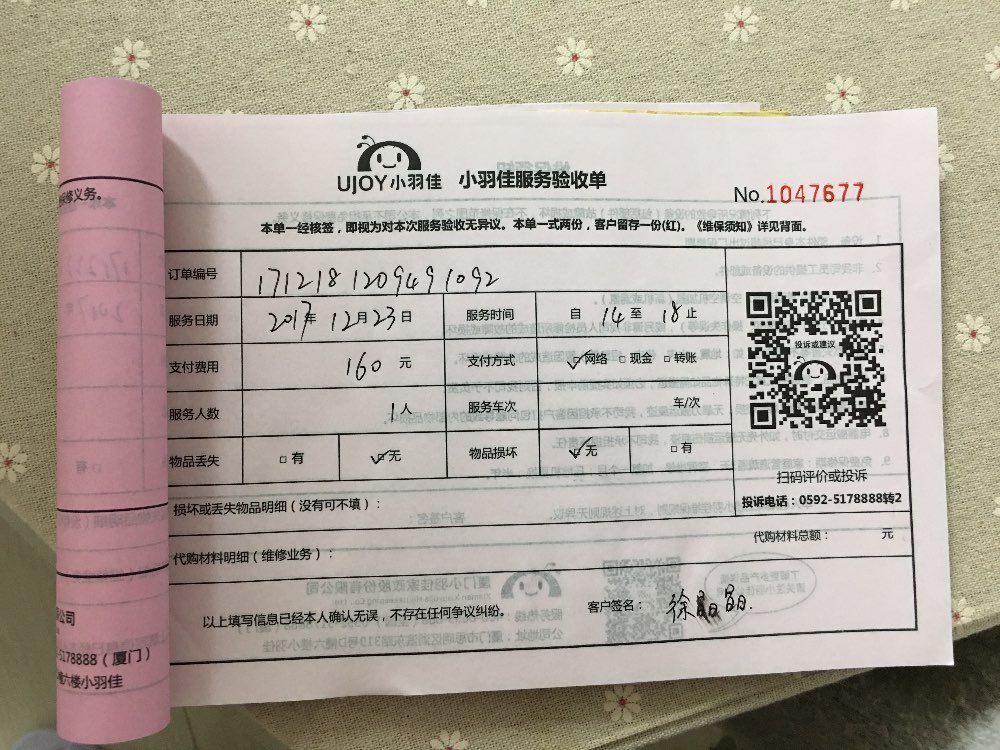 UJOY小羽佳 小羽佳服务验收单
No.1047677
本单一经核签，即视为对本次服务验收无异议。本单一式两份，客户留存一份(红)。《维保须知》详见背面。
订单编号 171218120949 1092
服务日期 2017年12月23日 服务时间 自 14 至 18 止
支付费用 160 元 支付方式 ☑网络 □现金 □转账
服务人数 1人 服务车次 车/次
物品丢失 □有 ☑无 物品损坏 ☑无 □有
投诉或建议
扫码评价或投诉
投诉电话：0592-5178888转2
损坏或丢失物品明细（没有可不填）：
代购材料明细（维修业务）：
代购材料总额： 元
以上填写信息已经本人确认无误，不存在任何争议纠纷。
客户签名： 徐晶晶.
保修义务。
公司
-5178888（厦门）
六楼小羽佳